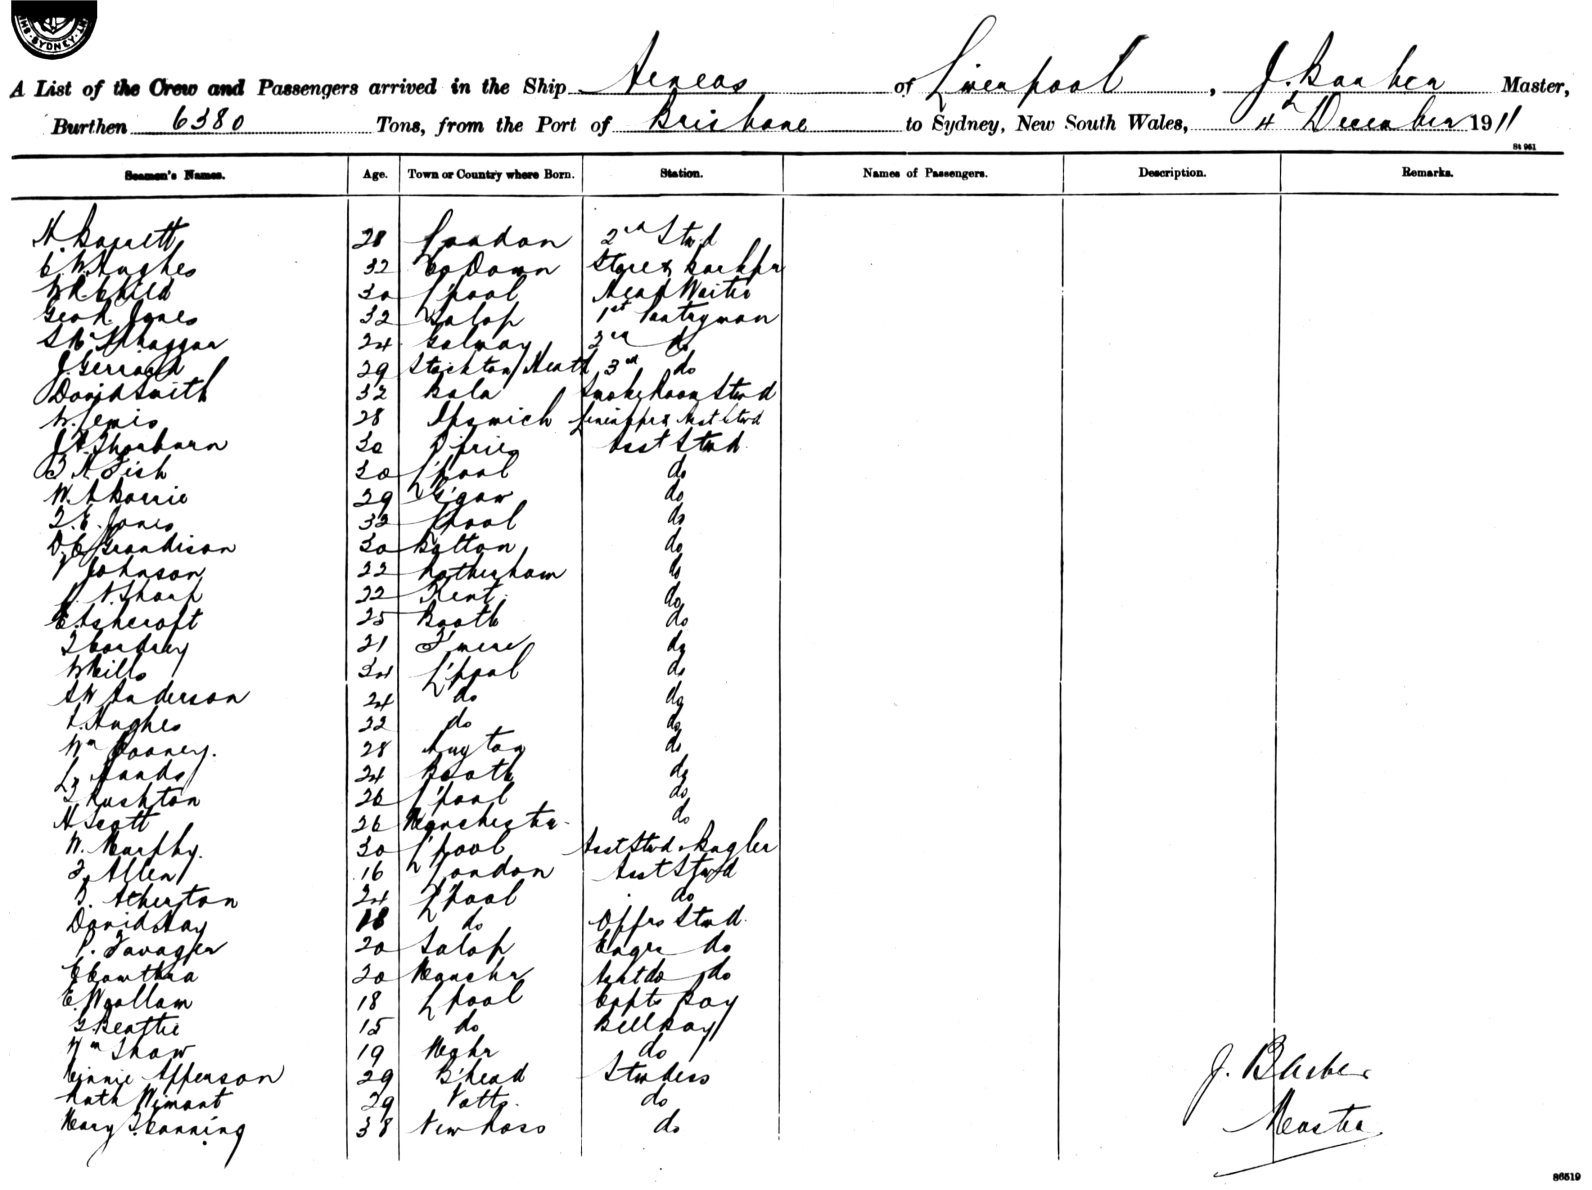 SYDNEY
A List of the Crew and Passengers arrived in the Ship Aeneas of Liverpool, J. Barber Master,
Burthen 6380 Tons, from the Port of Brisbane to Sydney, New South Wales, 4th December 1911
84 951
Seamen's Names. Age. Town or Country where Born. Station. Names of Passengers. Description. Remarks.
H. Barrett 28 London 2nd Stwd
E. W. Hughes 32 Co Down Store & Barkpr
W R Child 30 L'pool Head Waiter
Geo R. Jones 32 Salop 1st Pantryman
24 Galway 2nd do
J. Gerrard 29 Stockton Heath 3rd do
David Smith 32 Bala Smoke Room Stwd
W. Lewis 28 Ipswich Asst Stwd
J. Thorburn 30 Asst Stwd
Fish 30 L'pool do
W. A Barrie 29 G'gow do
T. E. Jones 32 L'pool do
Grandison 30 Bolton do
Johnson 22 Rotherham do
Sharp 22 Kent do
E. Ashcroft 25 Bootle do
Cordrey 21 T'mere do
W Mills 34 L'pool do
Anderson 24 do do
Hughes 22 do do
Wm Rooney. 28 Huyton do
Hands 24 Bootle do
Rushton 26 L'pool do
H Scott 26 Manchester do
W. Murphy. 30 L'pool Asst Stwd & Bugler
F. Allen 16 London Asst Stwd
Atherton 24 L'pool do
David Hay 18 do Offrs Stwd.
P. 20 Salop Engrs do
20 Manchr Asst do do
E. Woollam 18 L'pool Capts Boy
G Beattie 15 do Bell Boy
Wm Shaw 19 Mchr do
Minnie Apperson 29 B'head Stwdess
Ruth Wimant 29 Notts. do
Mary J. Canning 38 New Ross do
J. Barber
Master
86519